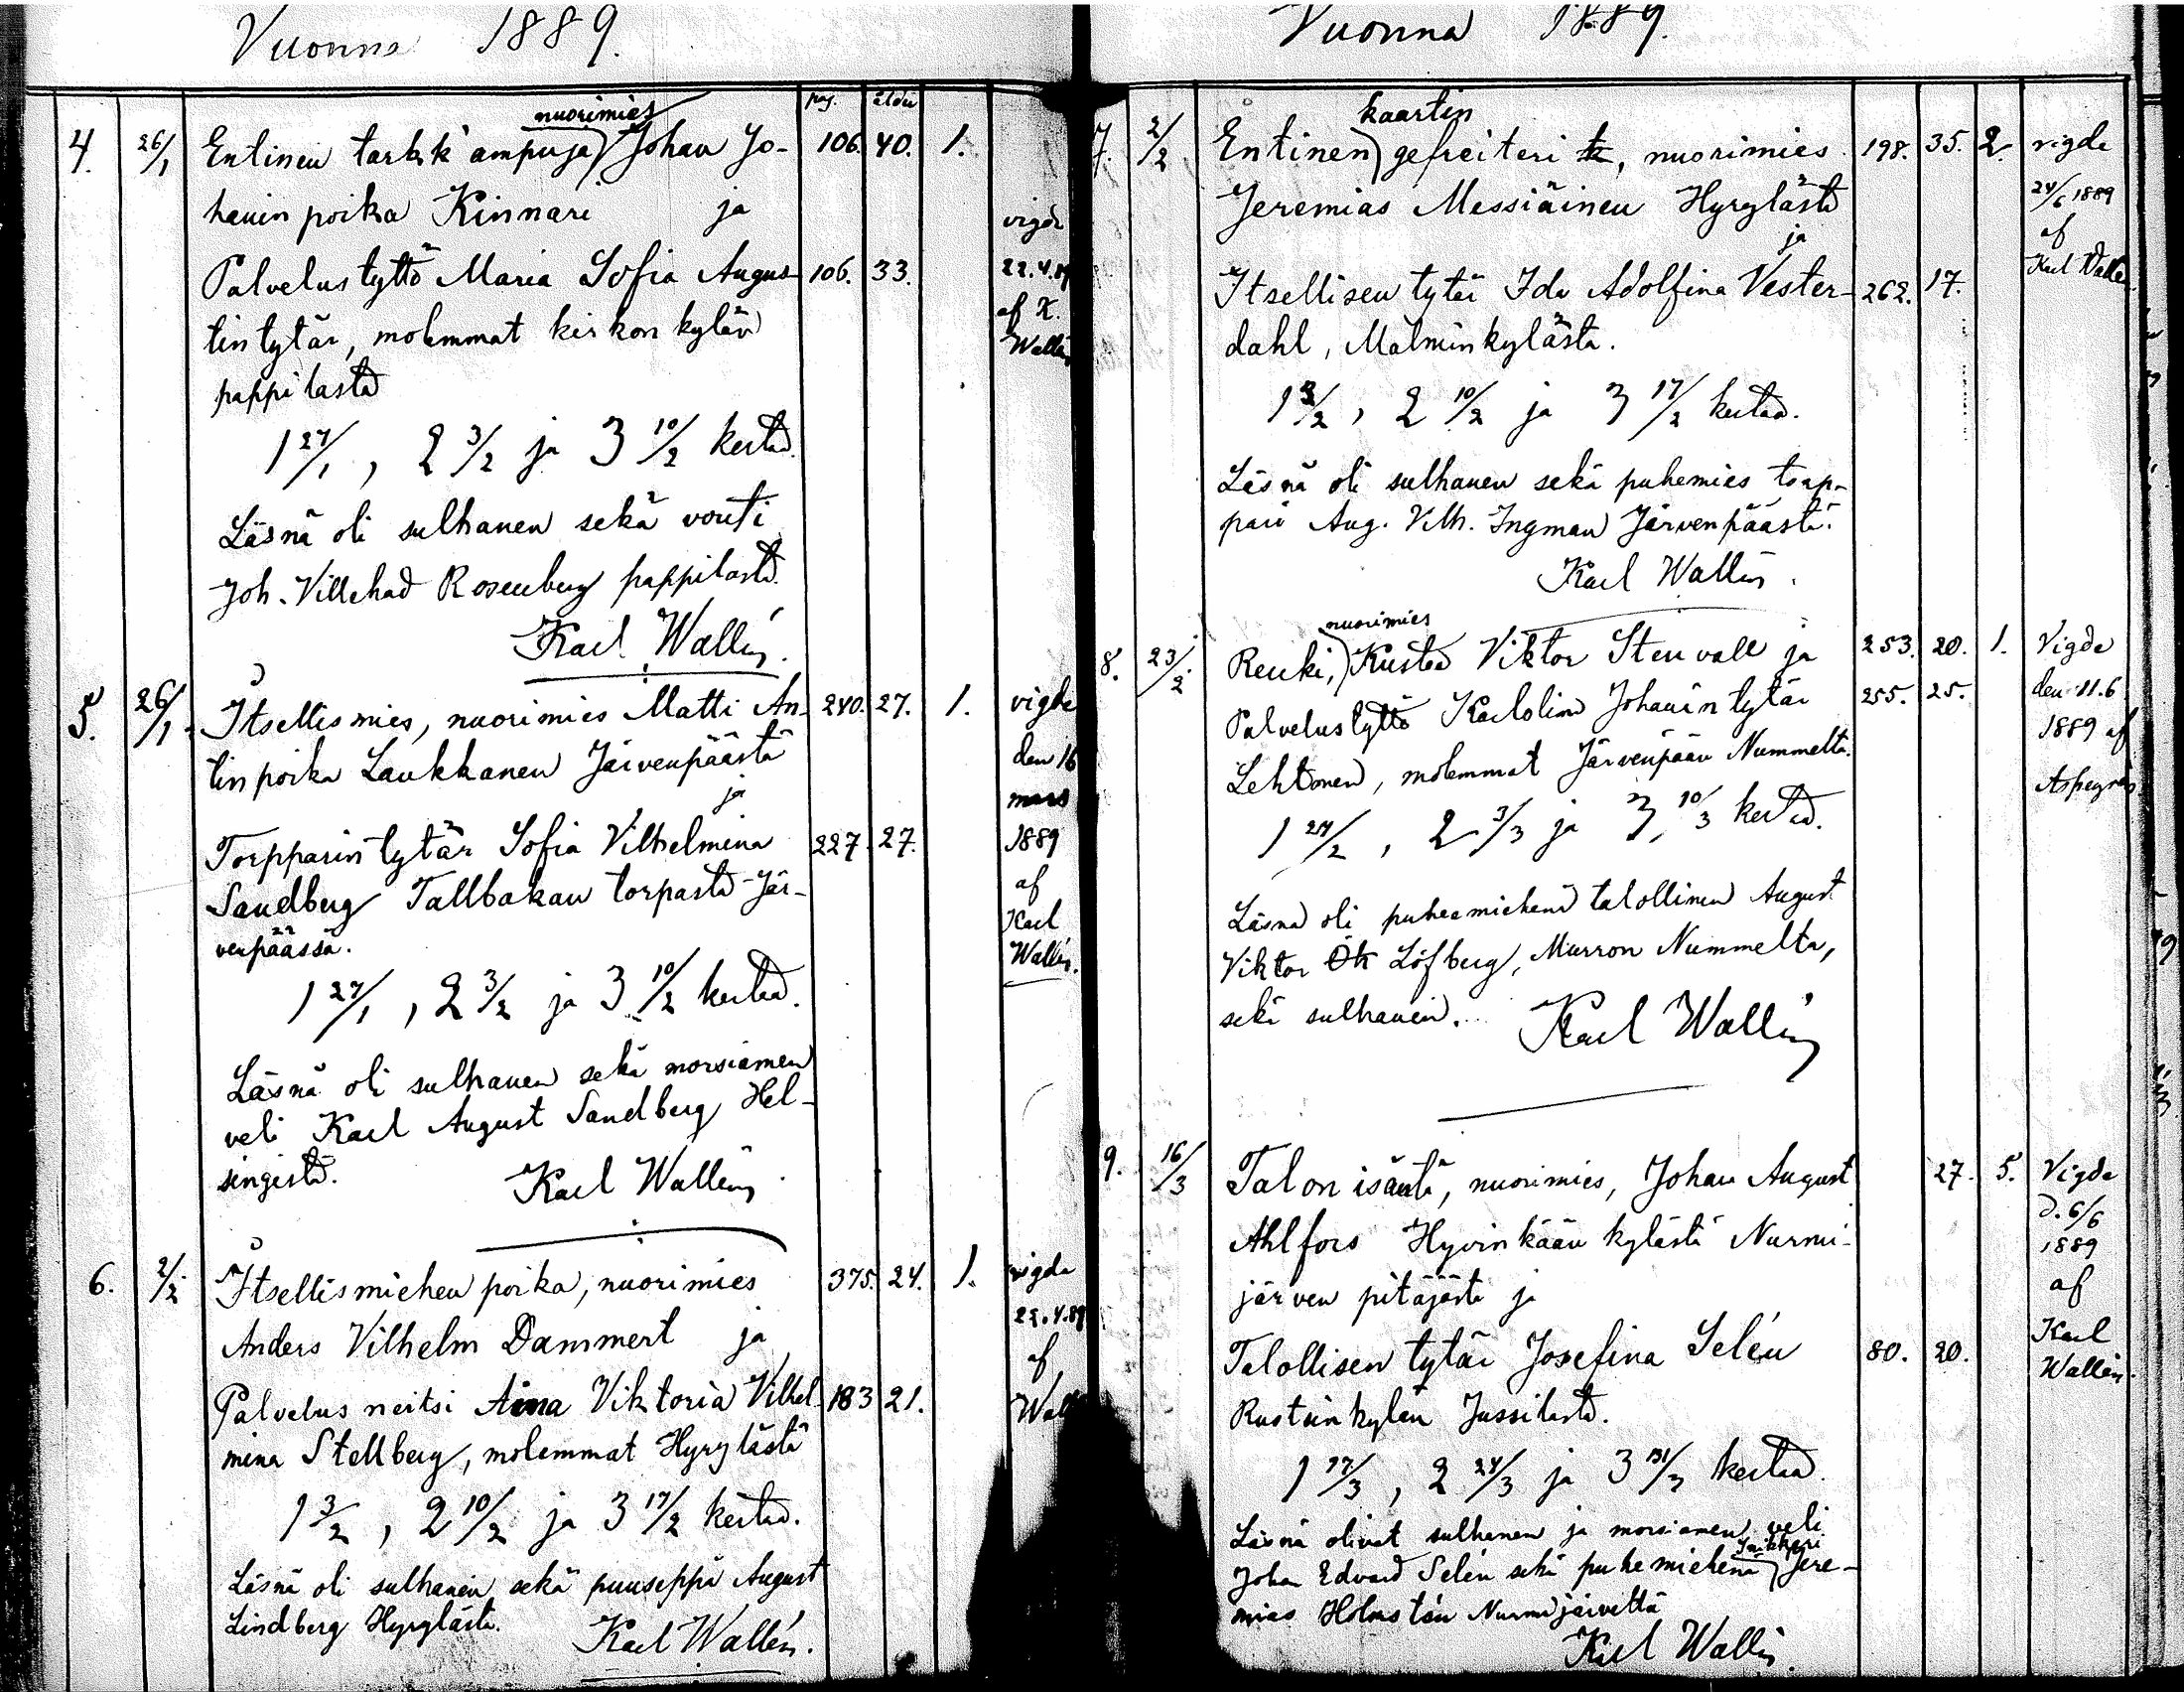 Vuonna 1889.
pag. ålder
nuorimies
4. 26/1 Entinen tarkk'ampuja Johan Jo- 106. 40. 1.
hanin poika Kinnari ja
Palvelustyttö Maria Sofia Augus- 106. 33.
tintytär, molemmat kirkonkylän
pappilasta
1 27/1, 2 3/2 ja 3 10/2 kertaa.
Läsnä oli sulhanen sekä vouti
Joh. Villehad Rosenberg pappilasta.
Karl Wallén.
vigde
22.4.89
af K.
Wallén
5. 26/1. Itsellismies, nuorimies Matti An- 240. 27. 1.
tinpoika Laukkanen Järvenpäästä
ja
Torpparin tytär Sofia Vilhelmina 227. 27.
Sandberg Tallbakan torpasta Jär-
venpäässä.
1 27/1, 2 3/2 ja 3 10/2 kertaa.
Läsnä oli sulhanen sekä morsiamen
veli Karl August Sandberg Hel-
singistä.
Karl Wallén.
vigde
den 16
mars
1889
af
Karl
Wallén.
6. 2/2 Itsellismiehen poika, nuorimies 375. 24. 1.
Anders Vilhelm Dammert ja
Palvelus neitsi Aina Viktoria Vilhel- 183 21.
mina Stellberg, molemmat Hyrylästä
1 3/2, 2 10/2 ja 3 17/2 kertaa.
Läsnä oli sulhanen sekä puuseppä August
Lindberg Hyrylästä.
Karl Wallén.
vigde
22.4.89
af
Wall
Vuonna 1889.
kaartin
7. 2/2 Entinen gefreiteri, nuorimies 198. 35. 2.
Jeremias Messiäinen Hyrylästä
ja
Itsellisen tytär Ida Adolfina Vester- 262. 17.
dahl, Malminkylästä.
1 3/2, 2 10/2 ja 3 17/2 kertaa.
Läsnä oli sulhanen sekä puhemies torp-
pari Aug. Vilh. Ingman Järvenpäästä.
Karl Wallén.
vigde
24/6 1889
af
Karl Wallén
nuorimies
8. 23/2 Renki, Kustaa Viktor Stenvall ja 253. 20. 1.
Palvelustyttö Karolina Johanin tytär 255. 25.
Lehtonen, molemmat Järvenpään Nummelta.
1 24/2, 2 3/3 ja 3 10/3 kertaa.
Läsnä oli puhemiehenä talollinen August
Viktor Löfberg, Murron Nummelta,
sekä sulhanen.
Karl Wallén
Vigde
den 11.6
1889 af
Aspegrén
9. 16/3 Talon isäntä, nuorimies, Johan August 27. 5.
Ahlfors Hyvinkään kylästä Nurmi-
järven pitäjästä ja
Talollisen tytär Josefina Selén 80. 20.
Rustiinkylän Jussilasta.
1 17/3, 2 24/3 ja 3 31/3 kertaa.
Läsnä olivat sulhanen ja morsiamen veli
nikkari
Johan Edvard Selén sekä puhemiehenä Jere-
mias Holmstén Nurmijärveltä
Karl Wallén.
Vigde
d. 6/6
1889
af
Karl
Wallén.